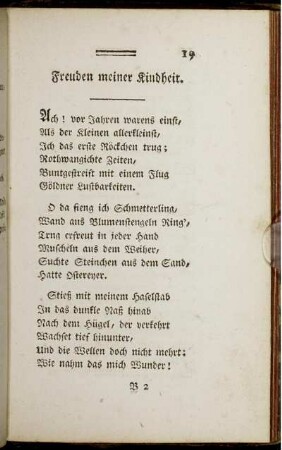 19
Freuden meiner Kindheit.
Ach! vor Jahren warens einst,
Als der Kleinen allerkleinst,
Ich das erste Röckchen trug;
Rothwangichte Zeiten,
Buntgestreift mit einem Flug
Göldner Lustbarkeiten.
O da fieng ich Schmetterling,
Wand aus Blumenstengeln Ring',
Trug erfreut in jeder Hand
Muscheln aus dem Weiher,
Suchte Steinchen aus dem Sand,
Hatte Ostereyer.
Stieß mit meinem Haselstab
In das dunkle Naß hinab
Nach dem Hügel, der verkehrt
Wachset tief hinunter,
Und die Wellen doch nicht mehrt;
Wie nahm das mich Wunder!
B 2